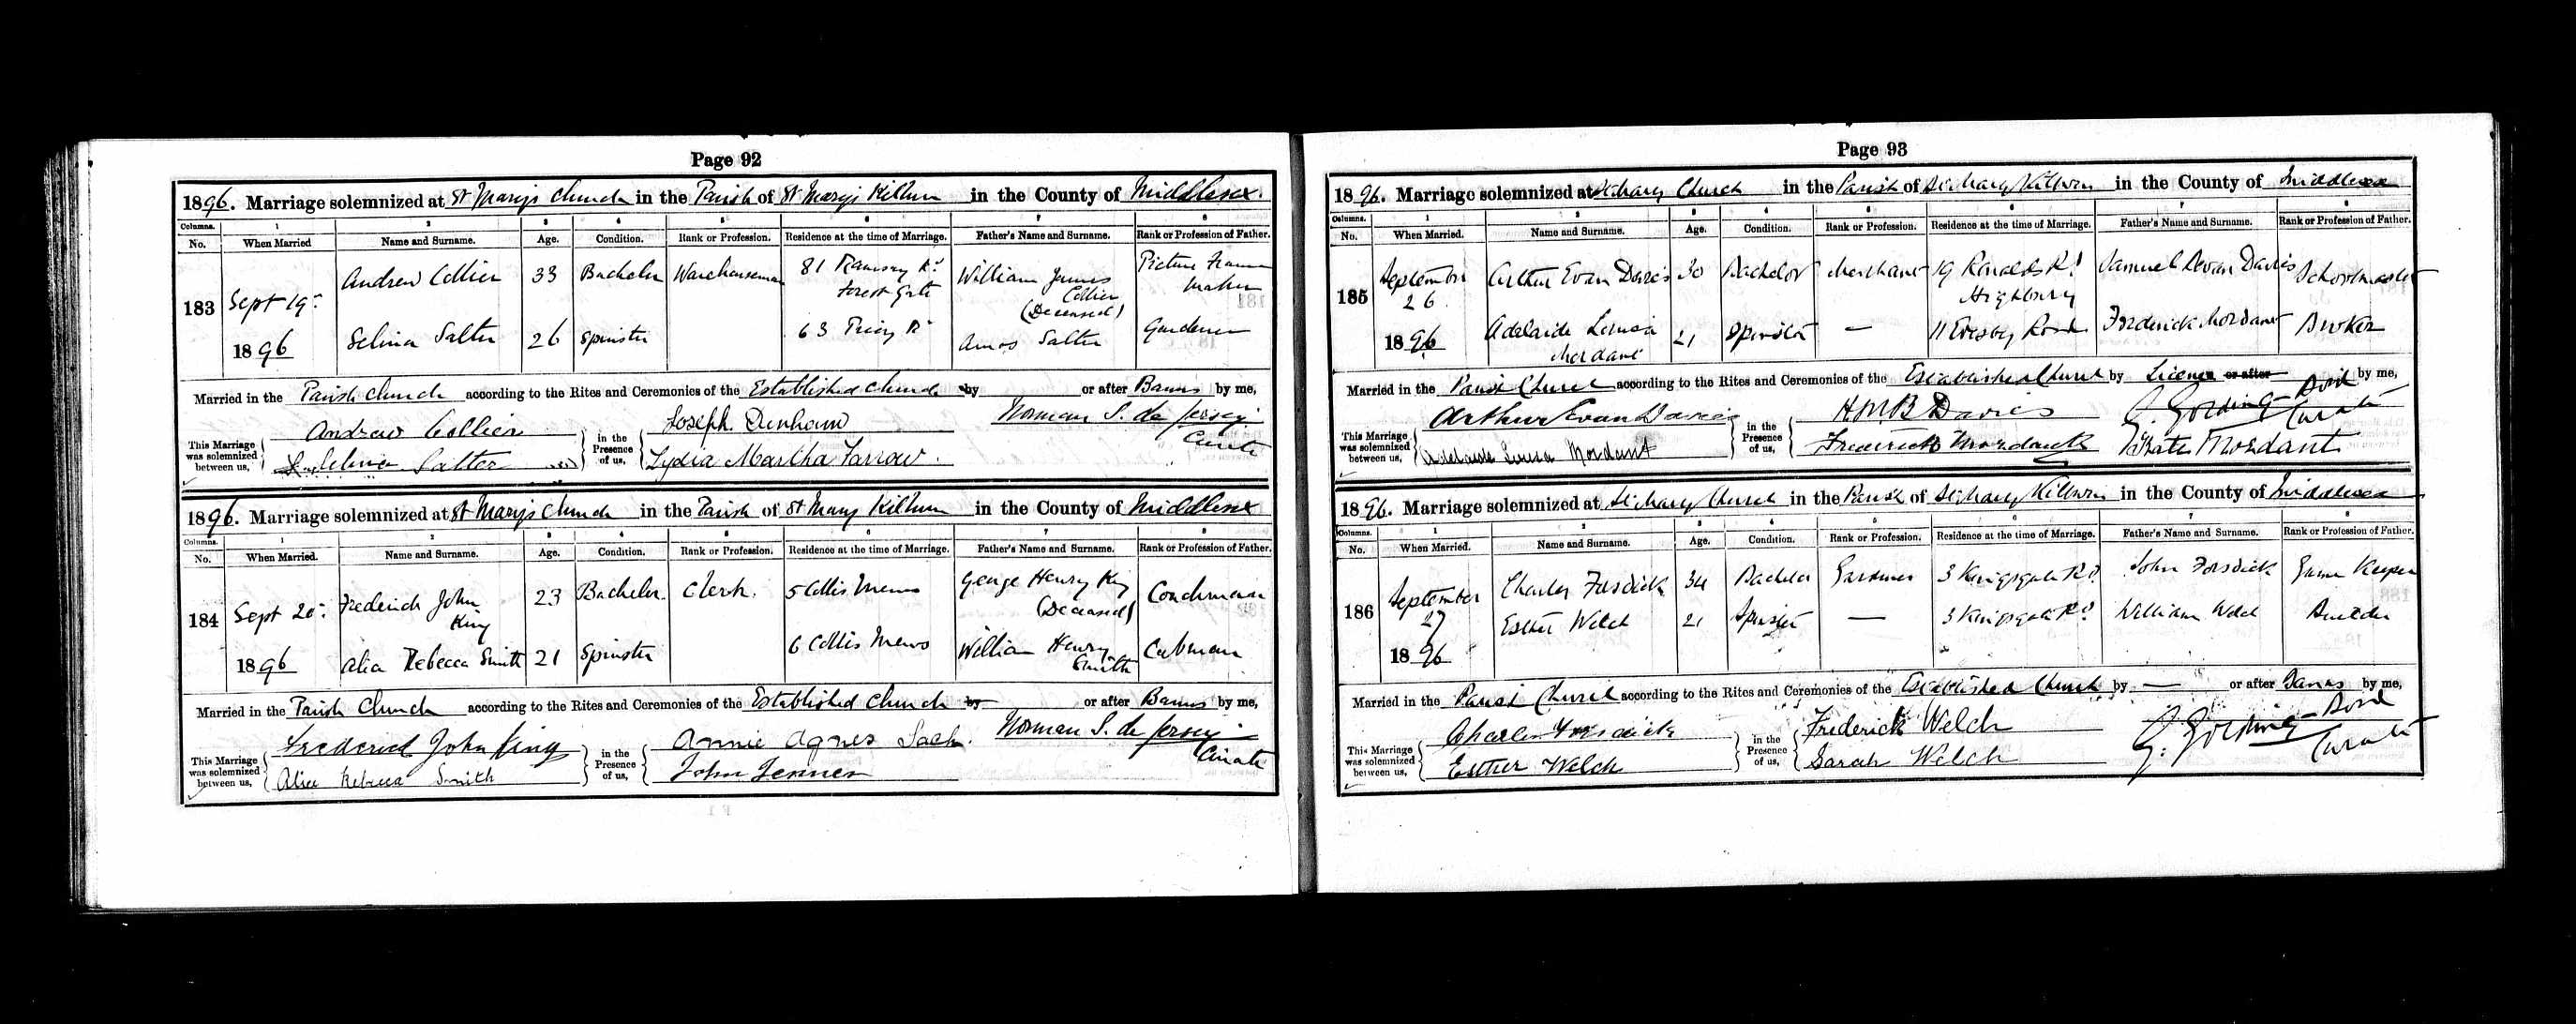 Page 92
1896. Marriage solemnized at St Mary's Church in the Parish of St Mary's Kilburn in the County of Middlesex.
Columns. 1 2 3 4 5 6 7 8
No. When Married Name and Surname. Age. Condition. Rank or Profession. Residence at the time of Marriage. Father's Name and Surname. Rank or Profession of Father.
183 Sept 19: 1896
Andrew Collier 33 Bachelor Warehouseman 81 Ramsay Rd Forest Gate William James Collier (Deceased) Picture Frame Maker
Selina Salter 26 Spinster 63 Priory Rd Amos Salter Gardener
Married in the Parish Church according to the Rites and Ceremonies of the Established Church by or after Banns by me,
This Marriage was solemnized between us, Andrew Collier
Selina Salter
in the Presence of us, Joseph Denham
Lydia Martha Farrow.
Norman S. de Jersey
Curate
1896. Marriage solemnized at St Mary's Church in the Parish of St Mary Kilburn in the County of Middlesex
Columns. 1 2 3 4 5 6 7 8
No. When Married. Name and Surname. Age. Condition. Rank or Profession. Residence at the time of Marriage. Father's Name and Surname. Rank or Profession of Father.
184 Sept 20: 1896
Frederick John King 23 Bachelor. Clerk. 5 Collis Mews George Henry King (Deceased) Coachman
Alice Rebecca Smith 21 Spinster 6 Collis Mews William Henry Smith Cabman
Married in the Parish Church according to the Rites and Ceremonies of the Established Church by or after Banns by me,
This Marriage was solemnized between us, Frederick John King
Alice Rebecca Smith
in the Presence of us, Annie Agnes
John Jenner
Norman S. de Jersey
Curate
Page 93
1896. Marriage solemnized at St Mary Church in the Parish of St Mary Kilburn in the County of Middlesex
Columns. 1 2 3 4 5 6 7 8
No. When Married. Name and Surname. Age. Condition. Rank or Profession. Residence at the time of Marriage. Father's Name and Surname. Rank or Profession of Father.
185 September 26 1896
Arthur Evan Davies 30 Bachelor Merchant 19 Ronalds Rd Highbury Samuel Evan Davies Schoolmaster
Adelaide Louisa Mordant 21 Spinster — 11 Road Frederick Mordant Broker
Married in the Parish Church according to the Rites and Ceremonies of the Established Church by Licence or after by me,
This Marriage was solemnized between us, Arthur Evan Davies
Adelaide Louisa Mordant
in the Presence of us, H M B Davies
Frederick Mordant
G. Golding-Bird
Curate
Kate Mordant
1896. Marriage solemnized at St Mary Church in the Parish of St Mary Kilburn in the County of Middlesex
Columns. 1 2 3 4 5 6 7 8
No. When Married. Name and Surname. Age. Condition. Rank or Profession. Residence at the time of Marriage. Father's Name and Surname. Rank or Profession of Father.
186 September 27 1896
Charles Fosdick 34 Bachelor Gardener 3 Kingsgate Rd. John Fosdick Game Keeper
Esther Welch 21 Spinster — 3 Kingsgate Rd. William Welch Builder
Married in the Parish Church according to the Rites and Ceremonies of the Established Church by — or after Banns by me,
This Marriage was solemnized between us, Charles Fosdick
Esther Welch
in the Presence of us, Frederick Welch
Sarah Welch
G. Golding-Bird
Curate